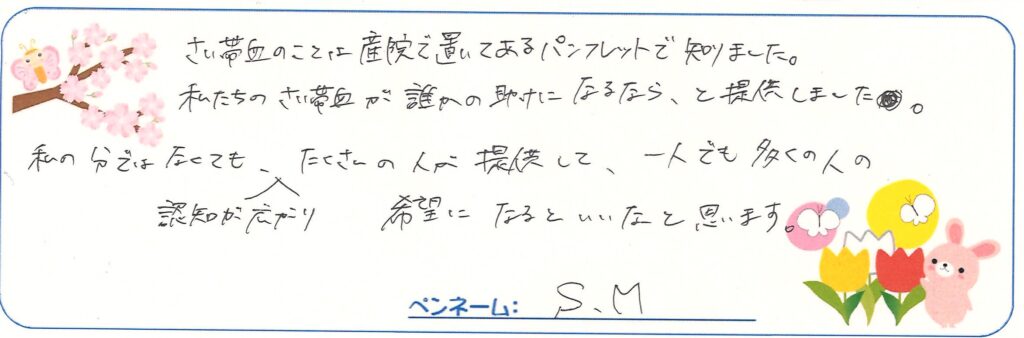 さい帯血のことは産院で置いてあるパンフレットで知りました。
私たちのさい帯血が誰かの助けになるなら、と提供しました。
私の分ではなくても、たくさんの人が提供して、一人でも多くの人の
認知が広がり 希望になるといいなと思います。
ペンネーム: S.M